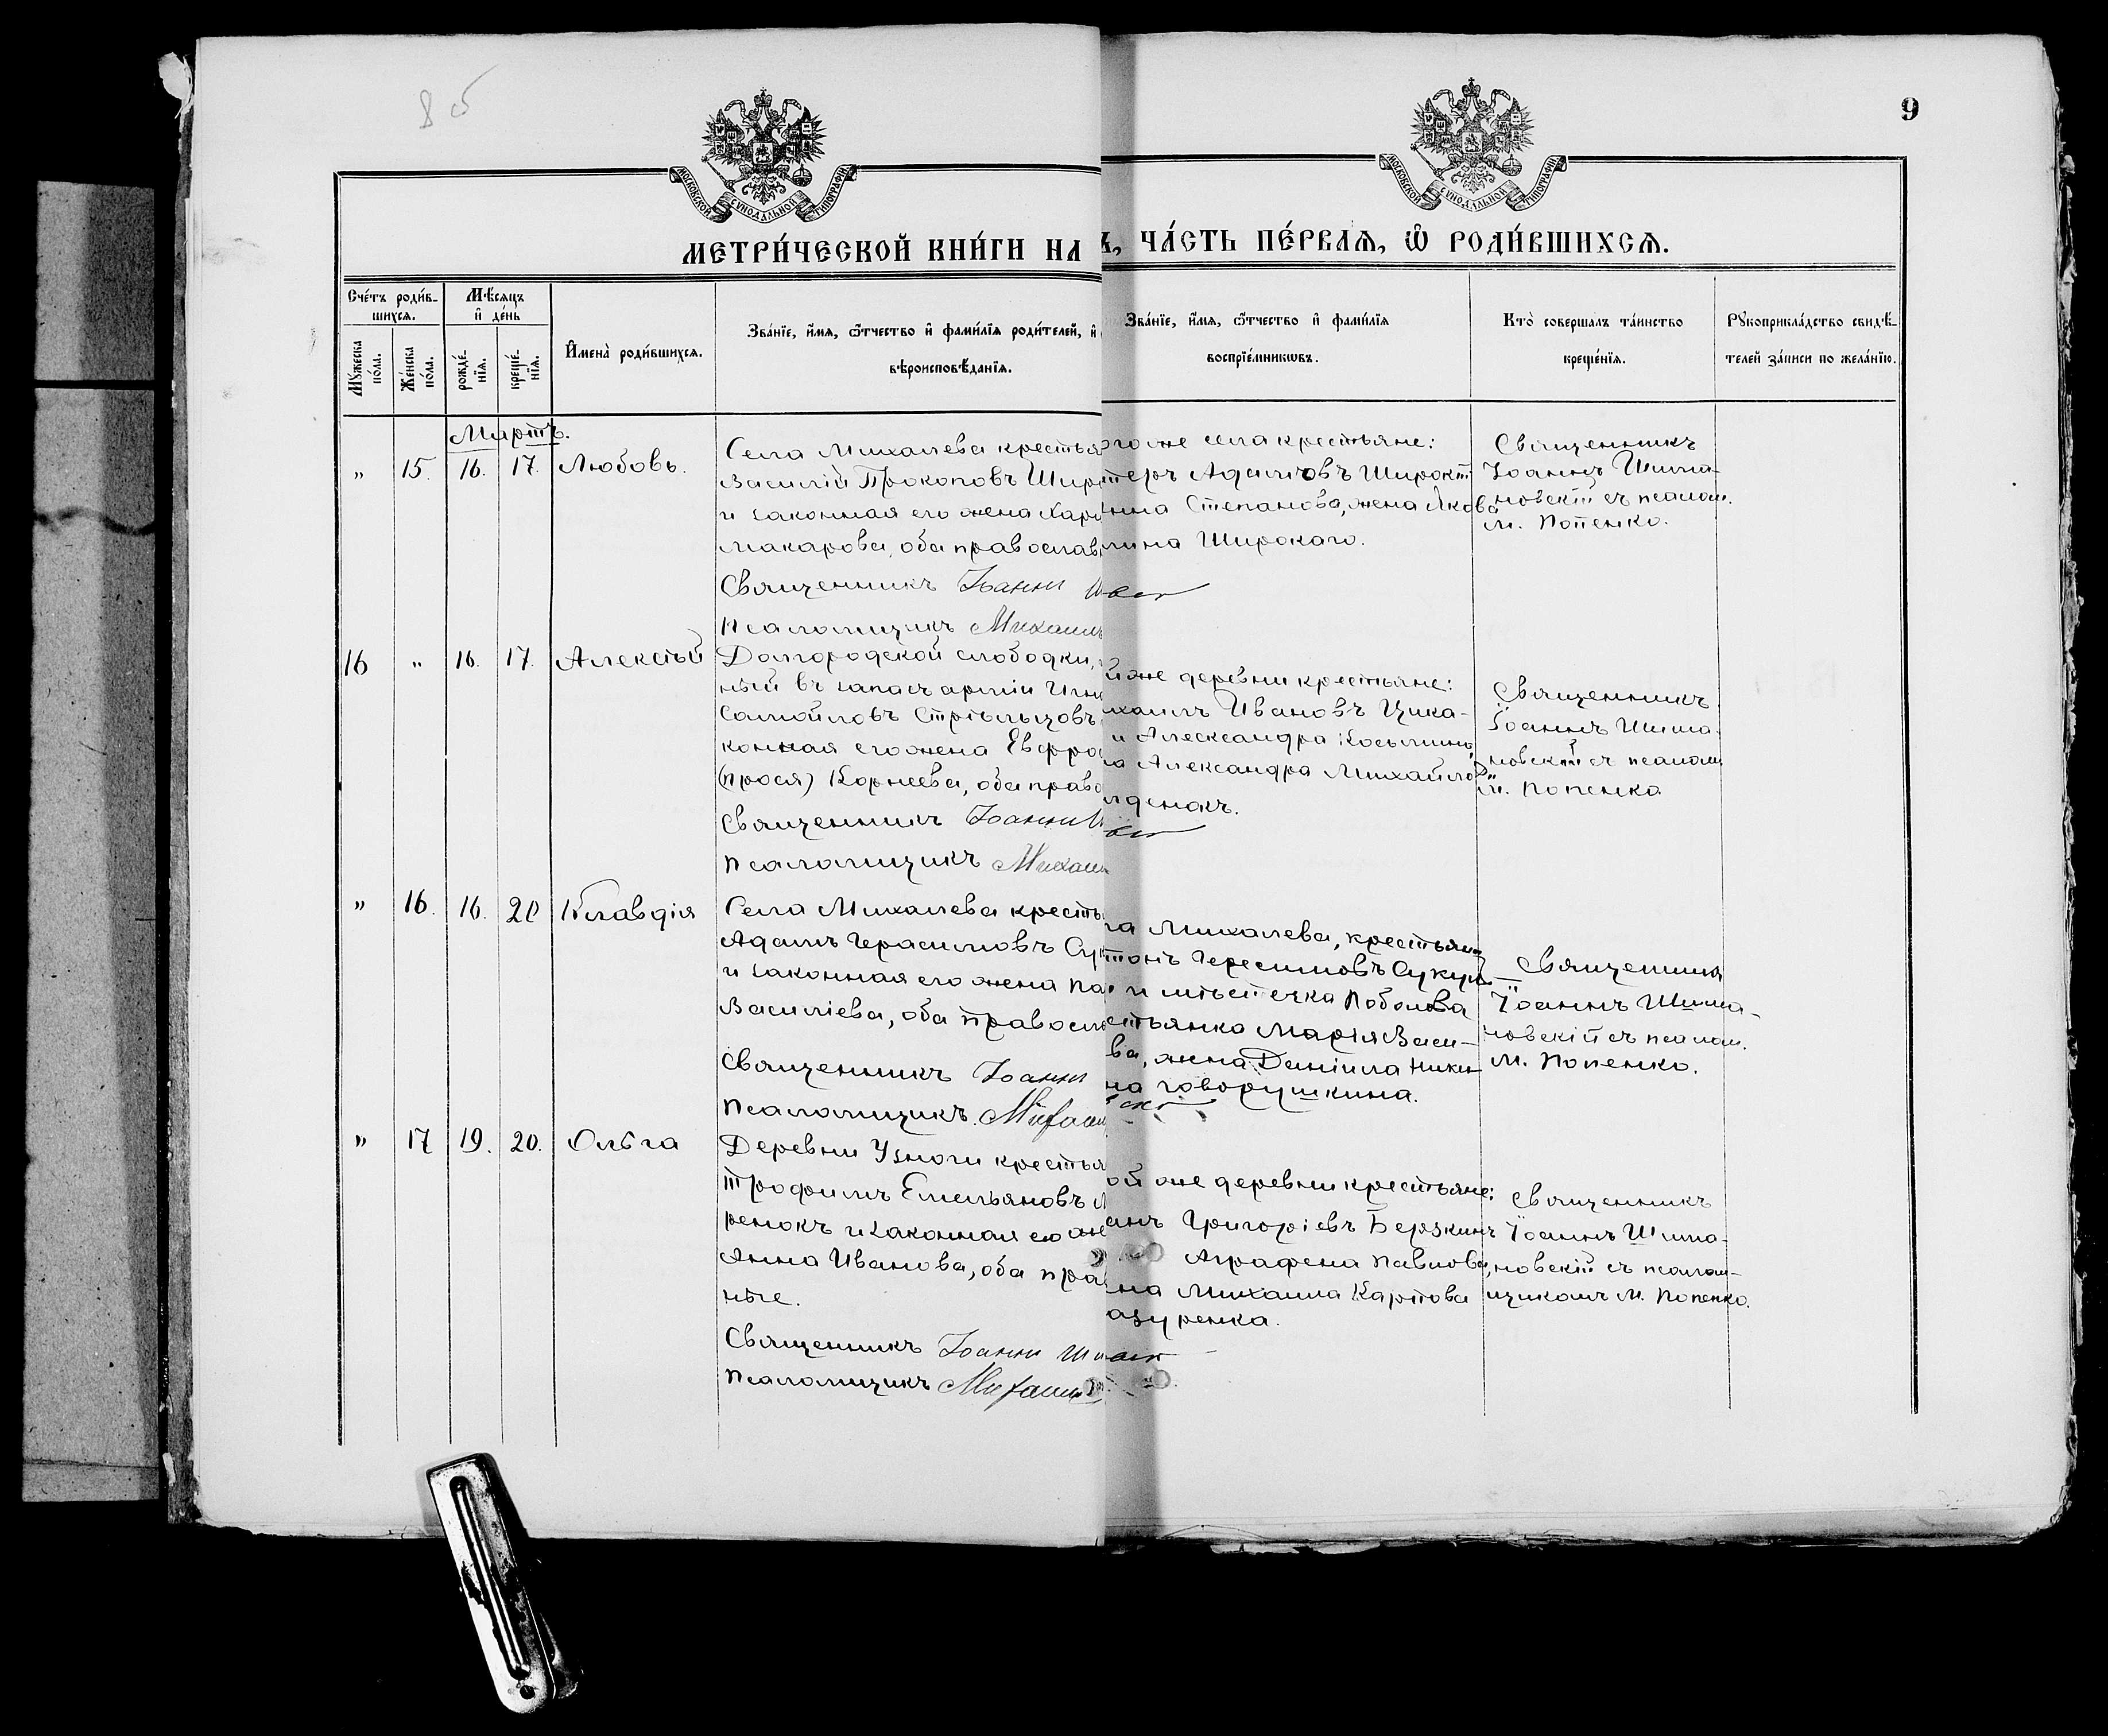 8 об
9
МОСКОВСКОЙ СѴНОДАЛЬНОЙ ТИПОГРАФІИ
МОСКОВСКОЙ СѴНОДАЛЬНОЙ ТИПОГРАФІИ
МЕТРИ́ЧЕСКОЙ КНИ́ГИ НА
Ъ, ЧА́СТЬ ПЕ́РВАѦ, Ѿ РОДИ́ВШИХСѦ.
Сче́тъ роди́в-
шихсѧ.
Мѣ́сѧцъ
и҆ де́нь
Мꙋ́жеска по́ла.
Же́нска по́ла.
рожде́-нїѧ.
креще́-нїѧ.
И҆мена̀ роди́вшихсѧ.
Зва́нїе, и҆́мѧ, ѻ҆́тчество и҆ фами́лїѧ роди́телей, и҆
вѣроисповѣ́данїѧ.
Зва́нїе, и҆́мѧ, ѻ҆́тчество и҆ фами́лїѧ
воспрїе́мникѡвъ.
Кто̀ соверша́лъ та́инство
креще́нїѧ.
Рꙋкоприкла́дство свидѣ́-
телей за́писи по жела́нїю.
Мартъ.
„ 15. 16. 17. Любовь.
Села Михалева крестья
Василій Прокоповъ Широ
и законная его жена Хари
Макарова, оба православн
Священникъ Іоаннъ
Псаломщикъ Михаилъ
гоже села крестьяне:
теръ Адамовъ Широкій
нна Степанова, жена Якова
лина Широкаго.
Священникъ
Іоаннъ Шима-
новскій съ псалом.
М. Попенко.
16 „ 16. 17. Алексѣй
Долгородской слободки,
ный въ запасъ арміи Игна
Самойловъ Стрѣльцовъ
конная его жена Евфро
(прося) Корнеева, оба право
Священникъ Іоаннъ
Псаломщикъ Михаил
й же деревни крестьяне:
ихаилъ Ивановъ Цика-
и Александра Косьмин
на Александра Михайлов
лденакъ.
Священникъ
Іоаннъ Шима-
новскій съ псалом
М. Попенко
„ 16. 16. 20 Клавдія
Села Михалева кресть
Адамъ Герасимовъ Сук
и законная его жена Па
Василіева, оба правосла
Священникъ Іоанн
Псаломщикъ. Михаи
ла Михалева, крестьянин
тонъ Герасимовъ Сукур
и мѣстечка Поболова
естьянка Марія Васи-
ва, жена Даніила Ники
на Говорушкина.
Священник
Іоаннъ Шима-
новскій съ псалом.
М. Попенко.
„ 17 19. 20. Ольга
Деревни Узноги крестья
Трофимъ Емельяновъ
ренокъ и законная его же
Анна Иванова, оба прав
ные.
Священникъ Іоаннъ Ши
Псаломщикъ Михаилъ
ой же деревни крестьяне:
анъ Григоріевъ Берзкинъ
Аграфена Павлова,
на Михаила Карпова
азуренка.
Священникъ
Іоаннъ Шима-
новскій съ псалом-
щикомъ М. Попенко.